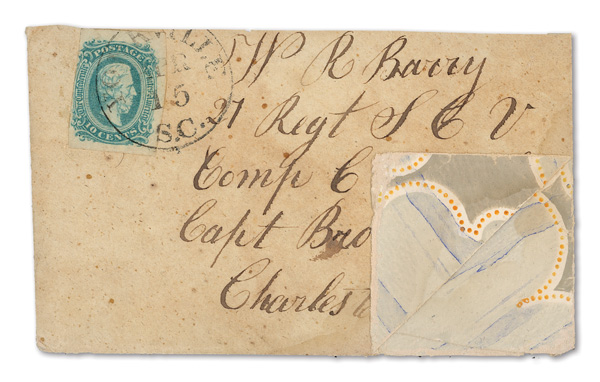 POSTAGE
10 CENTS
15
S.C.
W R Barry
27 Regt S C V
Comp C
Capt Bro
Charlest